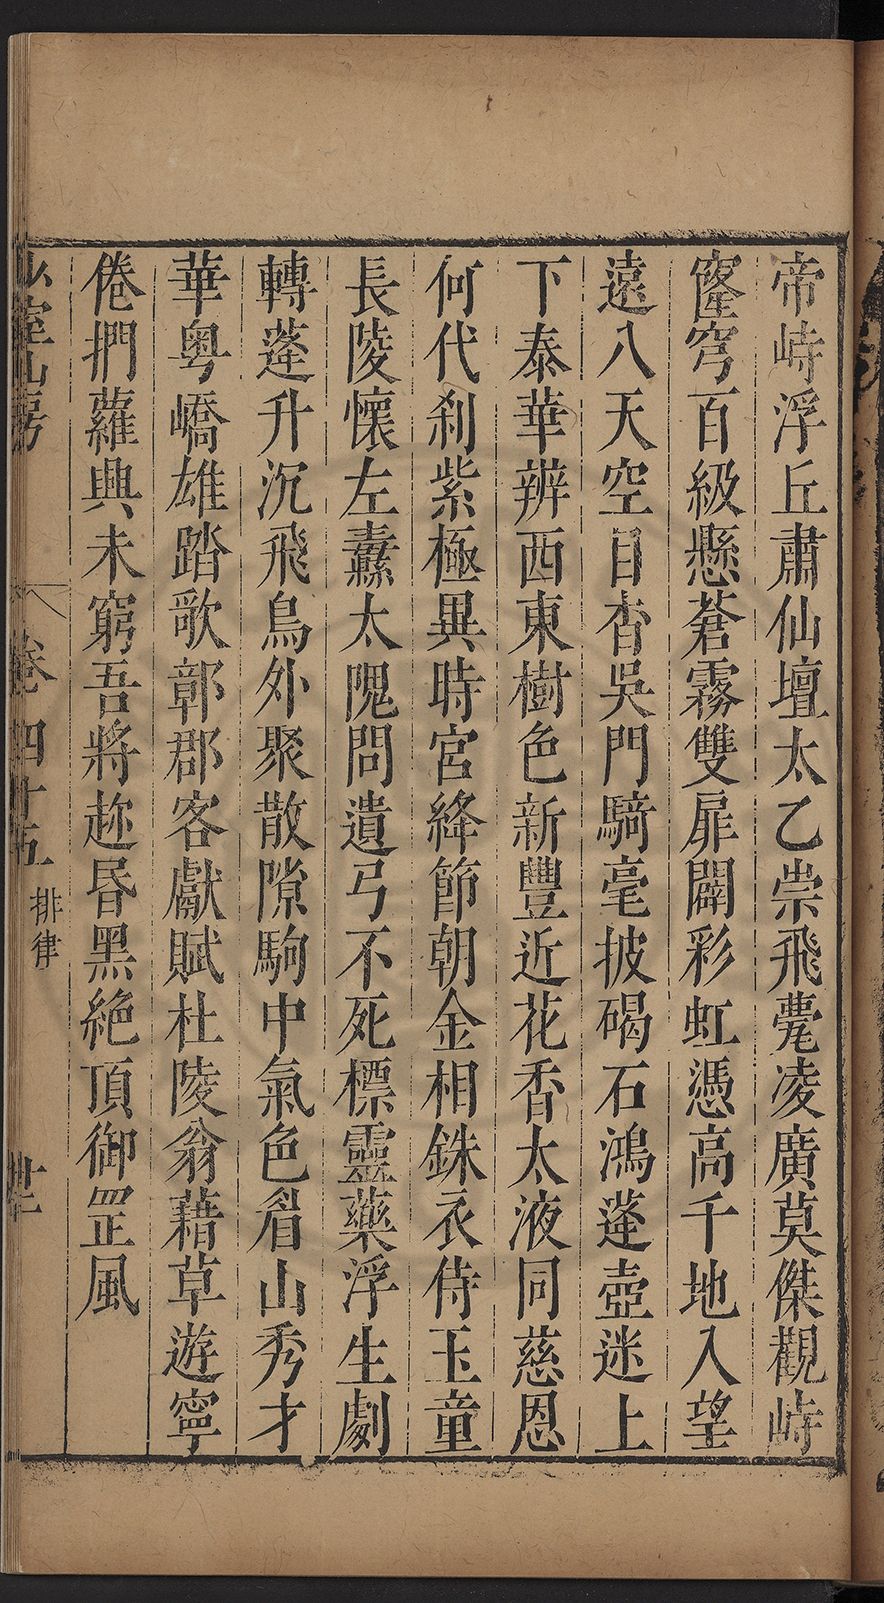 帝峙浮丘肅仙壇太乙崇飛甍凌廣莫傑觀峙
窿穹百級懸蒼霧雙扉闢彩虹憑高千地入望
遠八天空目杳吳門騎毫披碣石鴻蓬壺迷上
下泰華辨西東樹色新豐近花香太液同慈恩
何代剎紫極異時宮絳節朝金相銖衣侍玉童
長陵懷左纛太隗問遺弓不死標靈藥浮生劇
轉蓬升沉飛鳥外聚散隙駒中氣色眉山秀才
華粵嶠雄踏歌鄣郡客獻賦杜陵翁藉草遊寧
倦捫蘿興未窮吾將趂昏黑絕頂御罡風
少室山房
卷四十五
排律
廿